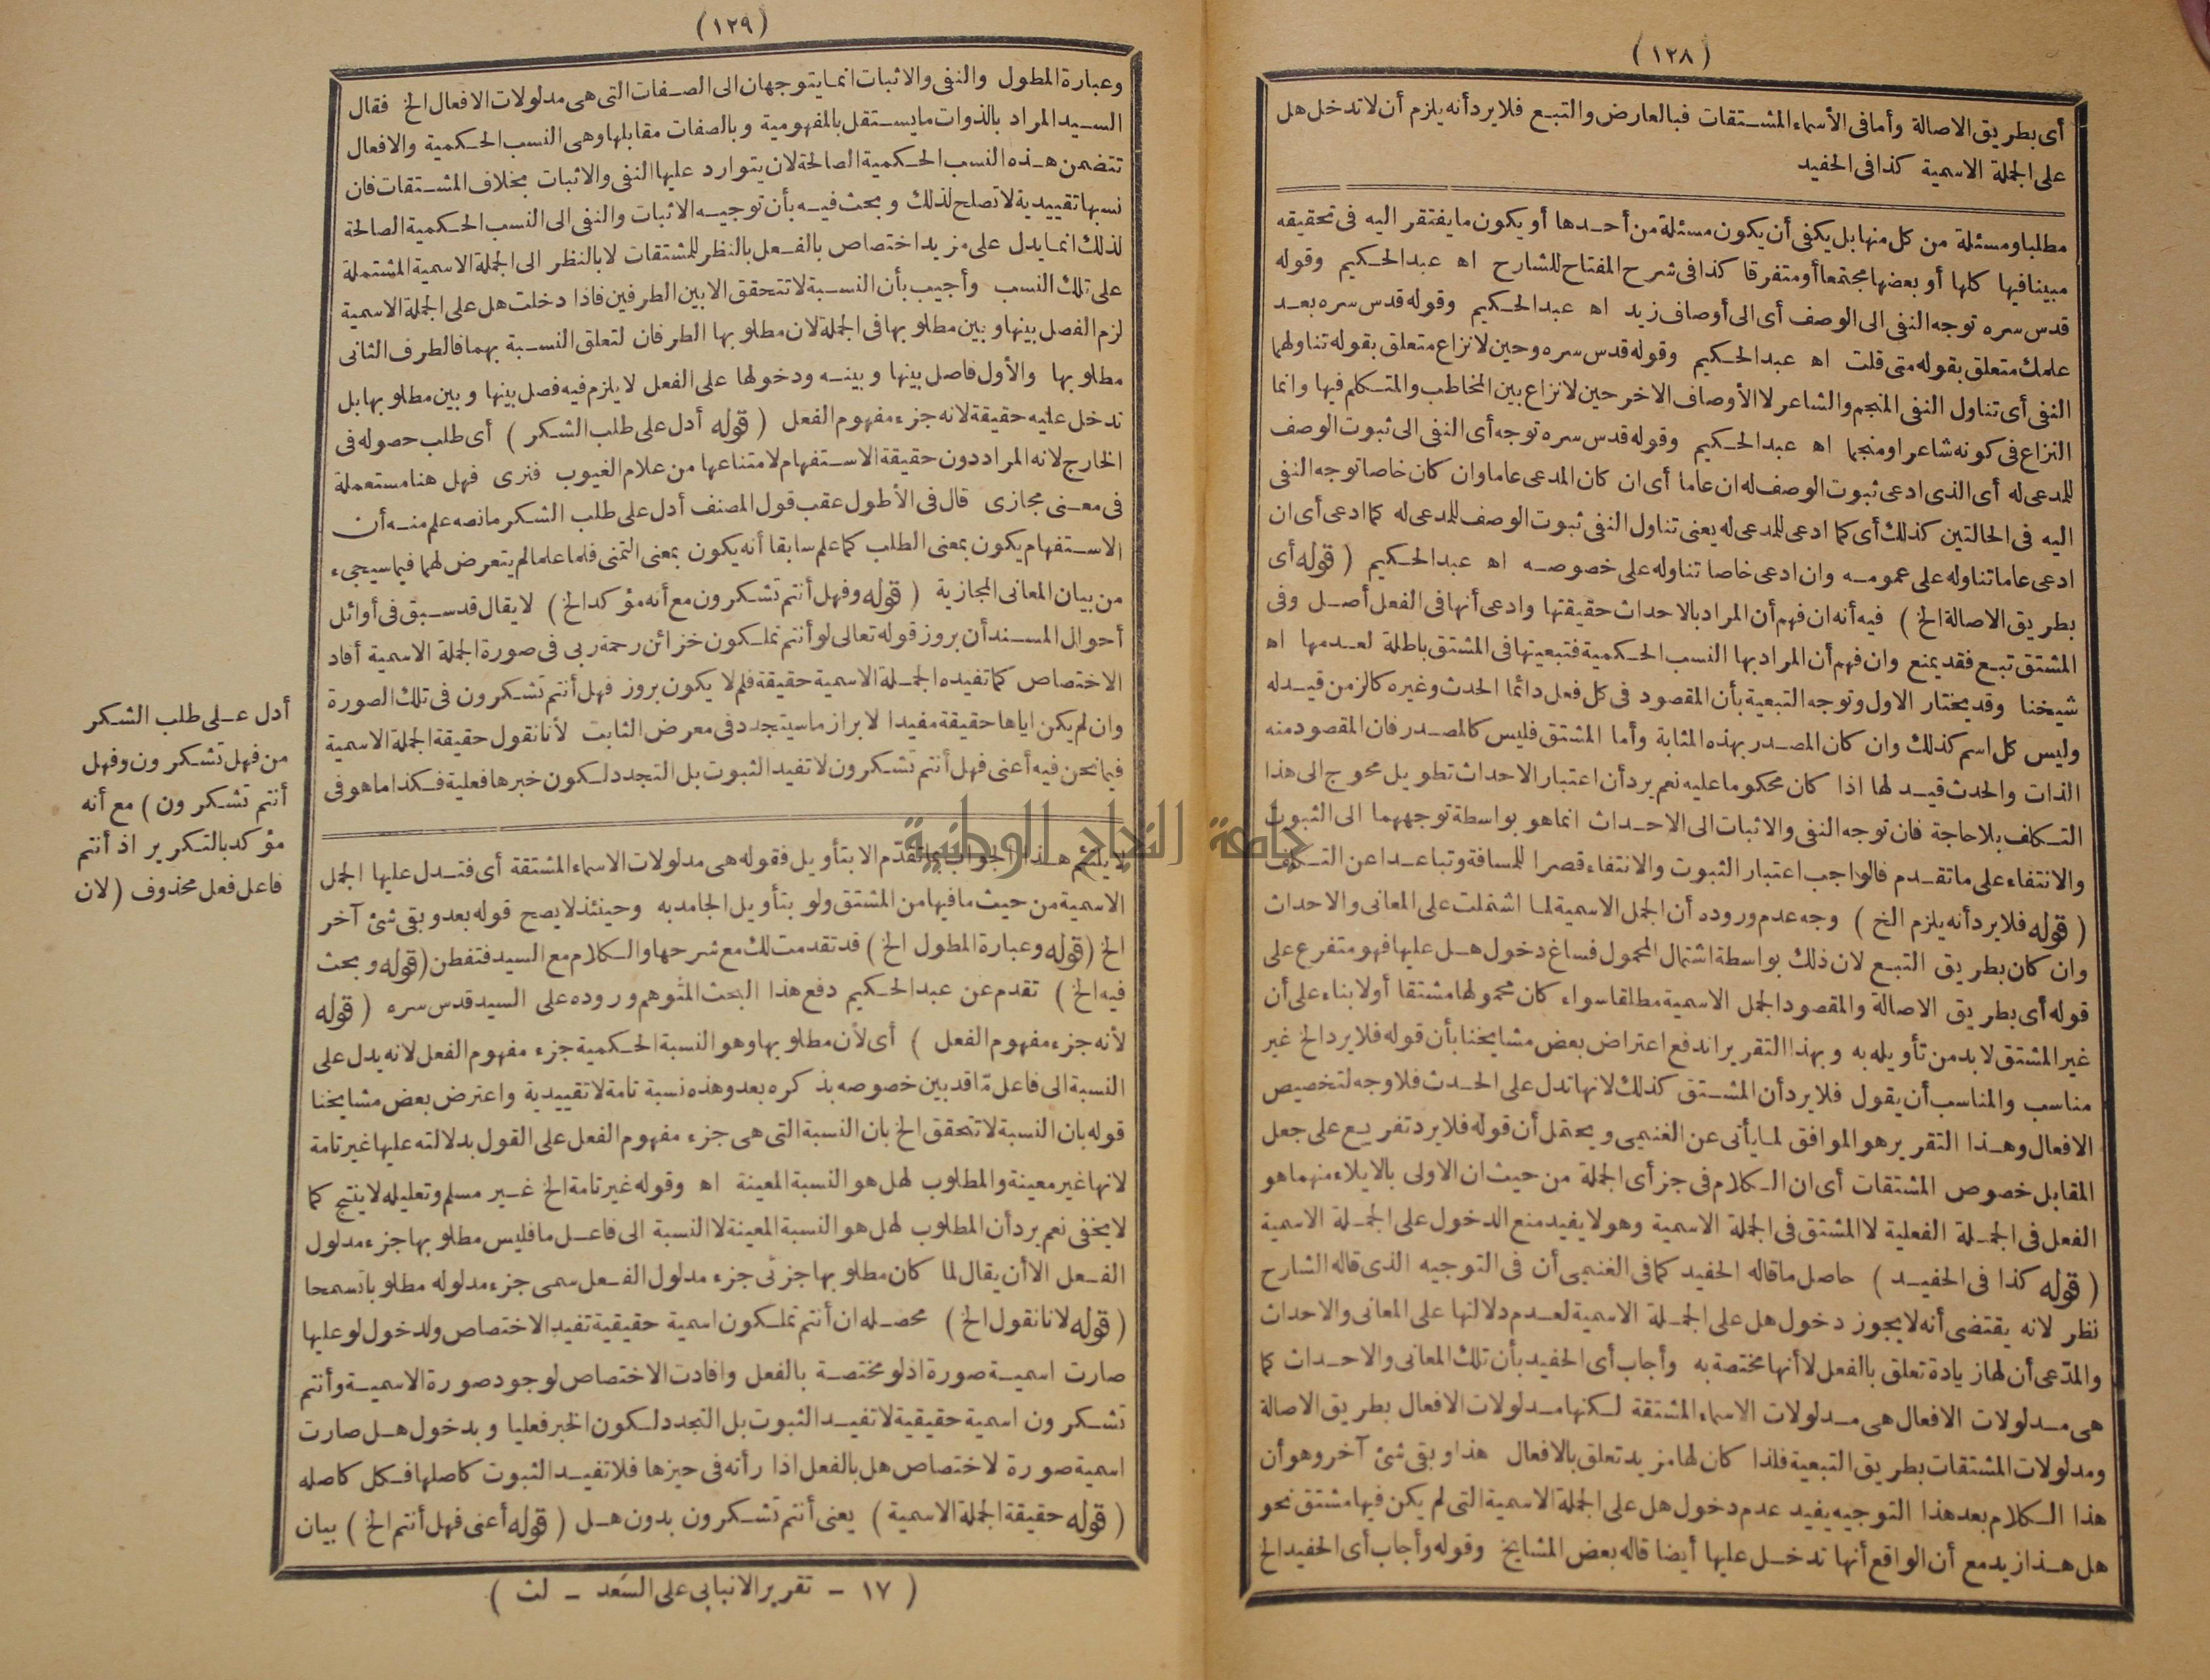 (١٢٨)
أى بطريق الاصالة وأما فى الأسماء المشتقات فبالعارض والتبع فلا يرد أنه يلزم أن لا تدخل هل
على الجملة الاسمية كذا فى الحفيد
مطلبا ومسئلة من كل منها بل يكفى أن يكون مسئلة من أحدها أو يكون ما يفتقر اليه فى تحقيقه
مبينا فيها كلها أو بعضها مجتمعا أو متفرقا كذا فى شرح المفتاح للشارح اه عبد الحكيم وقوله
قدس سره توجه النفى الى الوصف أى الى أوصاف زيد اه عبد الحكيم وقوله قدس سره بعد
علمك متعلق بقوله متى قلت اه عبد الحكيم وقوله قدس سره وحين لا نزاع متعلق بقوله تناولهما
النفى أى تناول النفى المنجم والشاعر لا الأوصاف الاخر حين لا نزاع بين المخاطب والمتكلم فيها وانما
النزاع فى كونه شاعرا ومنجما اه عبد الحكيم وقوله قدس سره توجه أى النفى الى ثبوت الوصف
للمدعى له أى الذى ادعى ثبوت الوصف له ان عاما أى ان كان المدعى عاما وان كان خاصا توجه النفى
اليه فى الحالتين كذلك أى كما ادعى للمدعى له يعنى تناول النفى ثبوت الوصف للمدعى له كما ادعى أى ان
ادعى عاما تناوله على عمومه وان ادعى خاصا تناوله على خصوصه اه عبد الحكيم (قوله أى
بطريق الاصالة الخ) فيه أنه ان فهم أن المراد بالاحداث حقيقتها وادعى أنها فى الفعل أصل وفى
المشتق تبع فقد يمنع وان فهم أن المراد بها النسب الحكمية فتبعيتها فى المشتق باطلة لعدمها اه
شيخنا وقد يختار الاول وتوجه التبعية بأن المقصود فى كل فعل دائما الحدث وغيره كالزمن قيد له
وليس كل اسم كذلك وان كان المصدر بهذه المثابة وأما المشتق فليس كالمصدر فان المقصود منه
الذات والحدث قيد لها اذا كان محكوما عليه نعم يرد أن اعتبار الاحداث تطويل محوج الى هذا
التكلف بلا حاجة فان توجه النفى والاثبات الى الاحداث انما هو بواسطة توجههما الى الثبوت
والانتفاء على ما تقدم فالواجب اعتبار الثبوت والانتفاء قصرا للمسافة وتباعدا عن التكلف
(قوله فلا يرد أنه يلزم الخ) وجه عدم وروده أن الجمل الاسمية لما اشتملت على المعانى والاحداث
وان كان بطريق التبع لان ذلك بواسطة اشتمال المحمول فساغ دخول هل عليها فهو متفرع على
قوله أى بطريق الاصالة والمقصود الجمل الاسمية مطلقا سواء كان محمولها مشتقا أولا بناء على أن
غير المشتق لا بد من تأويله به وبهذا التقرير اندفع اعتراض بعض مشايخنا بأن قوله فلا يرد الخ غير
مناسب والمناسب أن يقول فلا يرد أن المشتق كذلك لانها تدل على الحدث فلا وجه لتخصيص
الافعال وهذا التقرير هو الموافق لما يأتى عن الغنيمى ويحتمل أن قوله فلا يرد تفريع على جعل
المقابل خصوص المشتقات أى ان الكلام فى جزأى الجملة من حيث ان الاولى بالايلاء منهما هو
الفعل فى الجملة الفعلية لا المشتق فى الجملة الاسمية وهو لا يفيد منع الدخول على الجملة الاسمية
(قوله كذا فى الحفيد) حاصل ما قاله الحفيد كما فى الغنيمى أن فى التوجيه الذى قاله الشارح
نظر لانه يقتضى أنه لا يجوز دخول هل على الجملة الاسمية لعدم دلالتها على المعانى والاحداث
والمدّعى أن لها زيادة تعلق بالفعل لا أنها مختصة به وأجاب أى الحفيد بأن تلك المعانى والاحداث كما
هى مدلولات الافعال هى مدلولات الاسماء المشتقة لكنها مدلولات الافعال بطريق الاصالة
ومدلولات المشتقات بطريق التبعية فلذا كان لها مزيد تعلق بالافعال هذا وبقى شئ آخر وهو أن
هذا الكلام بعد هذا التوجيه يفيد عدم دخول هل على الجملة الاسمية التى لم يكن فيها مشتق نحو
هل هذا زيد مع أن الواقع أنها تدخل عليها أيضا قاله بعض المشايخ وقوله وأجاب أى الحفيد الخ
(١٢٩)
وعبارة المطول والنفى والاثبات انما يتوجهان الى الصفات التى هى مدلولات الافعال الخ فقال
السيد المراد بالذوات ما يستقل بالمفهومية وبالصفات مقابلها وهى النسب الحكمية والافعال
تتضمن هذه النسب الحكمية الصالحة لان يتوارد عليها النفى والاثبات بخلاف المشتقات فان
نسبها تقييدية لا تصلح لذلك وبحث فيه بأن توجيه الاثبات والنفى الى النسب الحكمية الصالحة
لذلك انما يدل على مزيد اختصاص بالفعل بالنظر للمشتقات لا بالنظر الى الجملة الاسمية المشتملة
على تلك النسب وأجيب بأن النسبة لا تتحقق الا بين الطرفين فاذا دخلت هل على الجملة الاسمية
لزم الفصل بينها وبين مطلوبها فى الجملة لان مطلوبها الطرفان لتعلق النسبة بهما فالطرف الثانى
مطلوبها والأول فاصل بينها وبينه ودخولها على الفعل لا يلزم فيه فصل بينها وبين مطلوبها بل
تدخل عليه حقيقة لانه جزء مفهوم الفعل (قوله أدل على طلب الشكر) أى طلب حصوله فى
الخارج لانه المراد دون حقيقة الاستفهام لامتناعها من علام الغيوب فنرى فهل هنا مستعملة
فى معنى مجازى قال فى الأطول عقب قول المصنف أدل على طلب الشكر ما نصه علم منه أن
الاستفهام يكون بمعنى الطلب كما علم سابقا أنه يكون بمعنى التمنى فلما علما لم يتعرض لهما فيما سيجىء
من بيان المعانى المجازية (قوله وفهل أنتم تشكرون مع أنه مؤكد الخ) لا يقال قد سبق فى أوائل
أحوال المسند أن بروز قوله تعالى لو أنتم تملكون خزائن رحمة ربى فى صورة الجملة الاسمية أفاد
الاختصاص كما تفيده الجملة الاسمية حقيقة فلم لا يكون بروز فهل أنتم تشكرون فى تلك الصورة
وان لم يكن اياها حقيقة مفيدا لابراز ما سيتجدد فى معرض الثابت لأنا نقول حقيقة الجملة الاسمية
فيما نحن فيه أعنى فهل أنتم تشكرون لا تفيد الثبوت بل التجدد لكون خبرها فعلية فكذا ما هو فى
أدل على طلب الشكر
من فهل تشكرون وفهل
أنتم تشكرون) مع أنه
مؤكد بالتكرير اذ أنتم
فاعل فعل محذوف (لان
لا يلتئم هذا الجواب بما تقدّم الا بتأويل فقوله هى مدلولات الاسماء المشتقة أى فتدل عليها الجمل
الاسمية من حيث ما فيها من المشتق ولو بتأويل الجامد به وحينئذ لا يصح قوله بعد وبقى شئ آخر
الخ (قوله وعبارة المطول الخ) قد تقدمت لك مع شرحها والكلام مع السيد فتفطن (قوله وبحث
فيه الخ) تقدم عن عبد الحكيم دفع هذا البحث المتوهم وروده على السيد قدس سره (قوله
لأنه جزء مفهوم الفعل) أى لأن مطلوبها وهو النسبة الحكمية جزء مفهوم الفعل لانه يدل على
النسبة الى فاعل مّا قد بين خصوصه بذكره بعد وهذه نسبة تامة لا تقييدية واعترض بعض مشايخنا
قوله بان النسبة لا تتحقق الخ بان النسبة التى هى جزء مفهوم الفعل على القول بدلالته عليها غير تامة
لانها غير معينة والمطلوب لهل هو النسبة المعينة اه وقوله غير تامة الخ غير مسلم وتعليله لا ينتج كما
لا يخفى نعم يرد أن المطلوب لهل هو النسبة المعينة لا النسبة الى فاعل ما فليس مطلوبها جزء مدلول
الفعل الا أن يقال لما كان مطلوبها جزئى جزء مدلول الفعل سمى جزء مدلوله مطلوبا تسمحا
(قوله لانا نقول الخ) محصله ان أنتم تملكون اسمية حقيقية تفيد الاختصاص ولدخول لو عليها
صارت اسمية صورة اذ لو مختصة بالفعل وافادت الاختصاص لوجود صورة الاسمية وأنتم
تشكرون اسمية حقيقية لا تفيد الثبوت بل التجدد لكون الخبر فعليا وبدخول هل صارت
اسمية صورة لاختصاص هل بالفعل اذا رأته فى حيزها فلا تفيد الثبوت كاصلها فكل كاصله
(قوله حقيقة الجملة الاسمية) يعنى أنتم تشكرون بدون هل (قوله أعنى فهل أنتم الخ) بيان
(١٧ - تقرير الانبابى على السعد - لث)
جامعة النجاح الوطنية